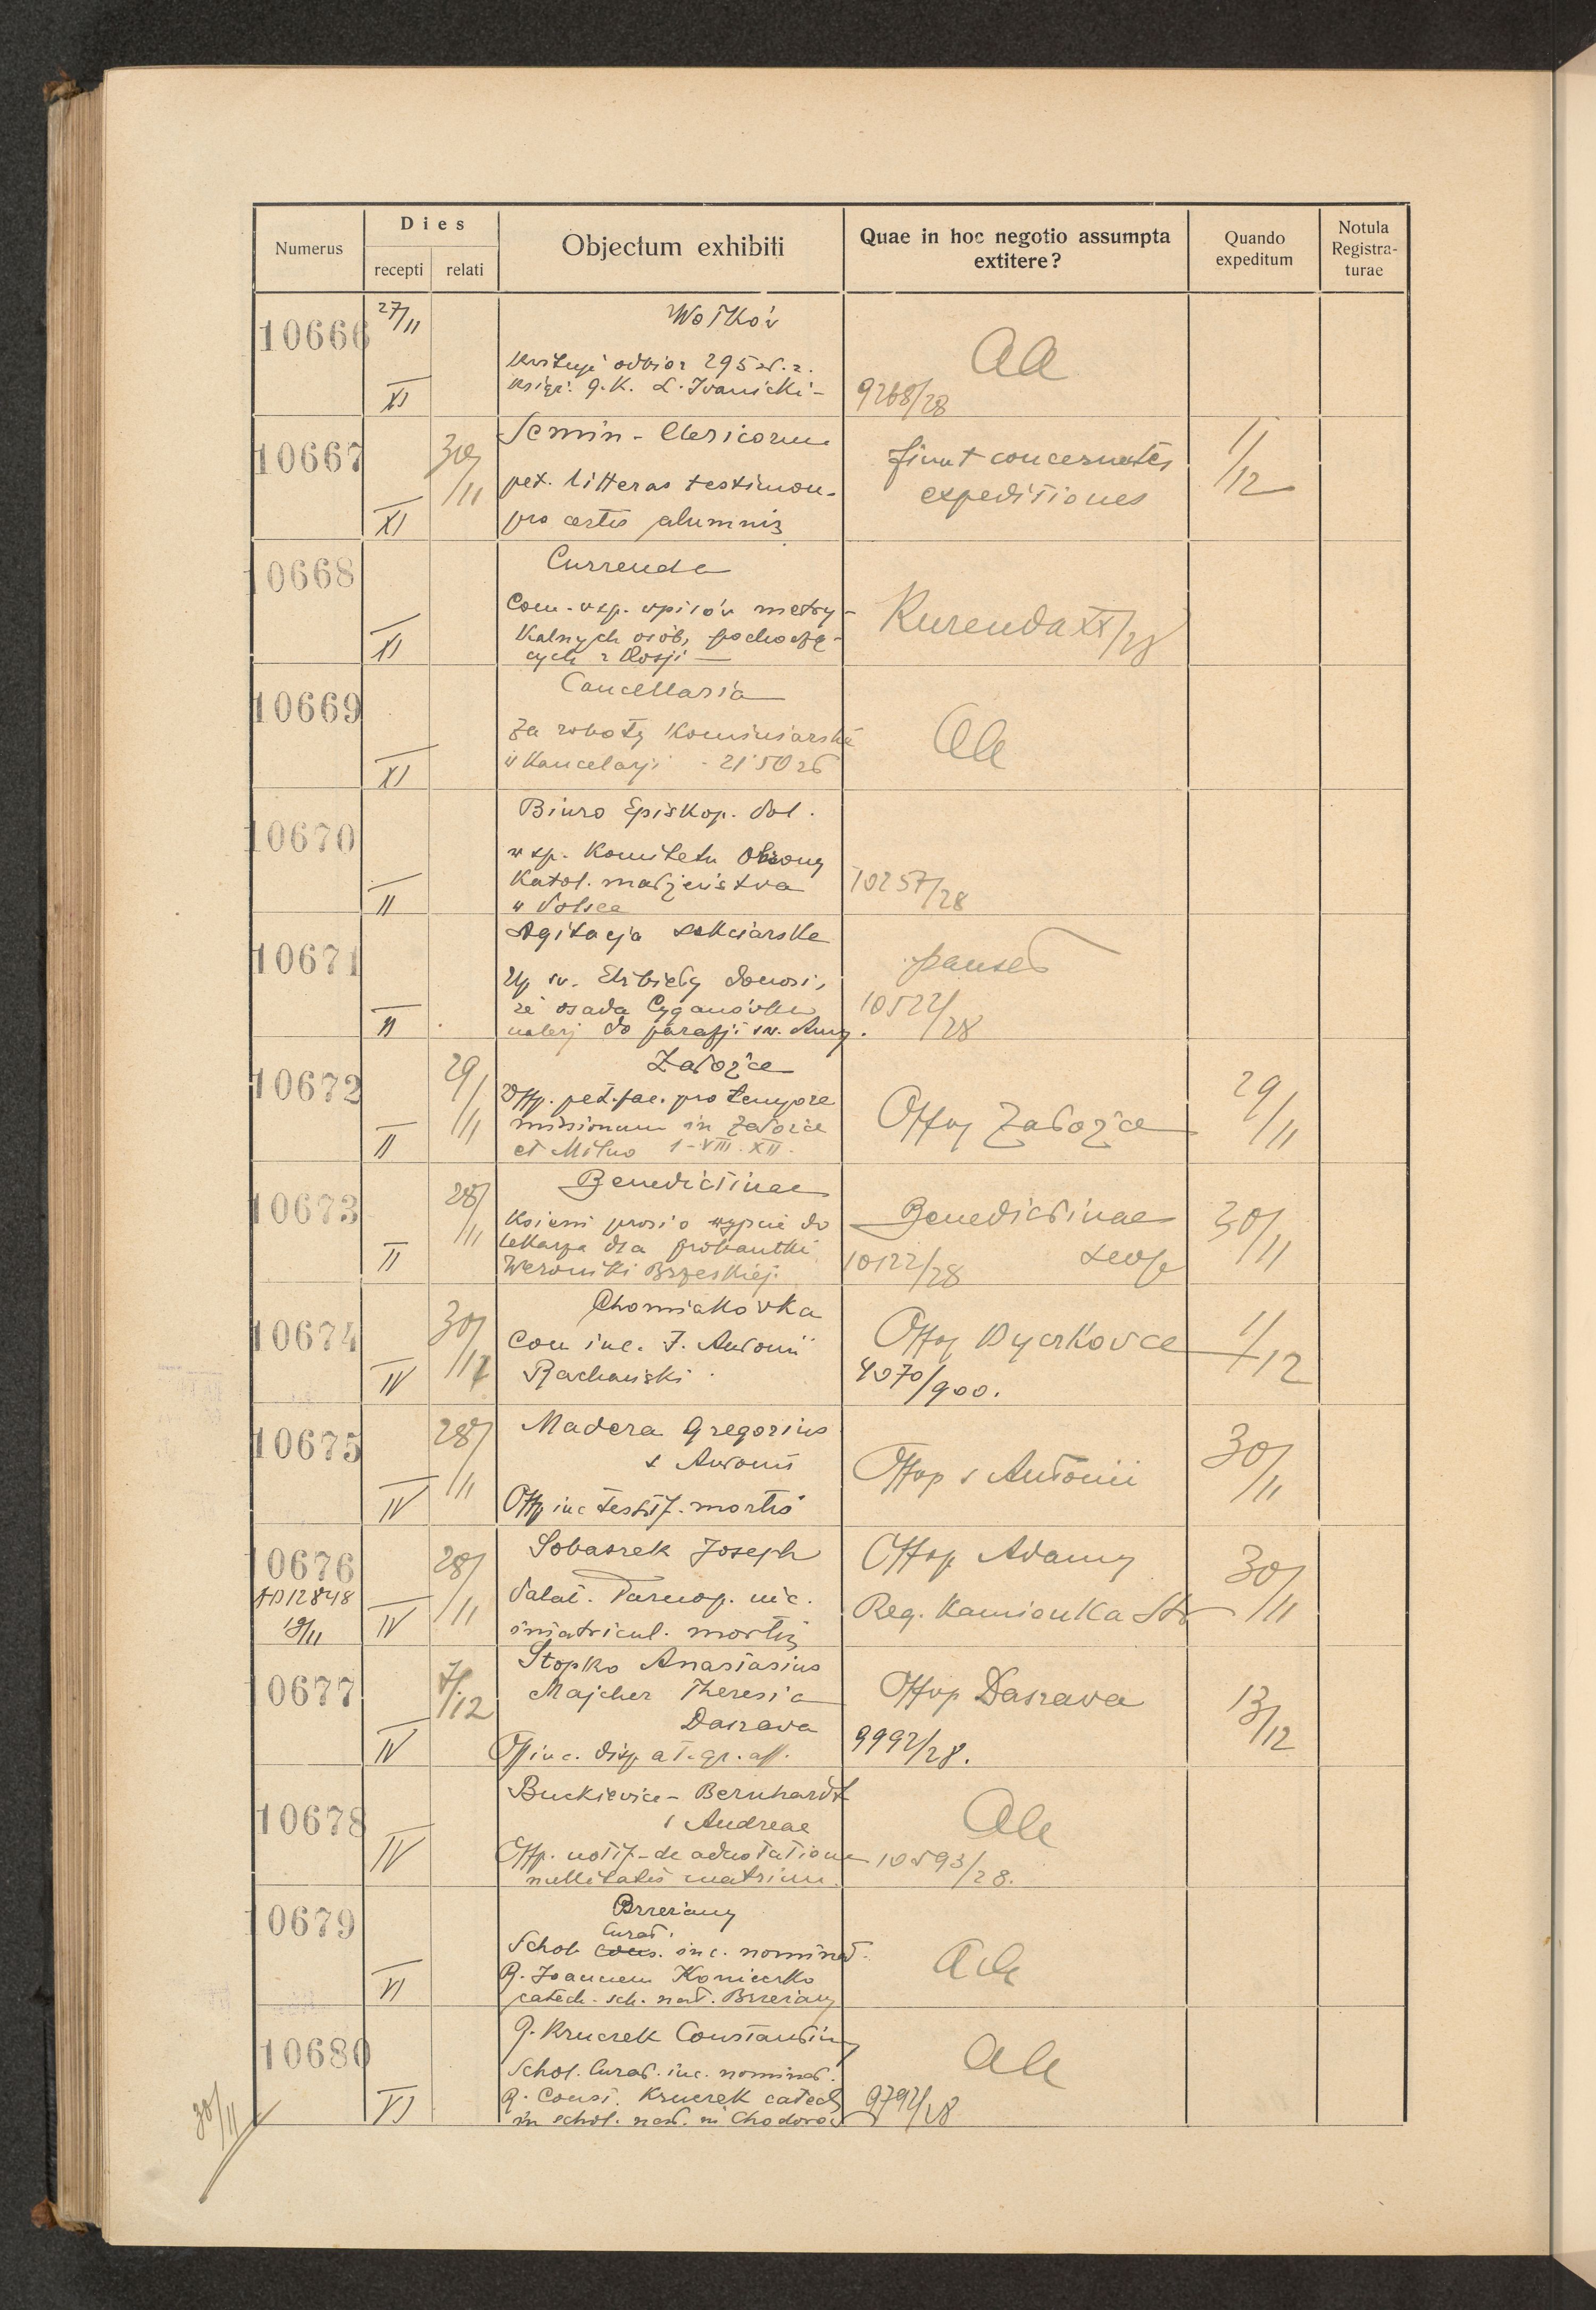 Numerus
Dies
recepti
relati
Objectum exhibiti
Quae in hoc negotio assumpta
extitere?
Quando
expeditum
Notula
Registra-
turae
10666
27/11
XI
Wołków
Kwituje odbiór 295 zł. z.
9268/28
aa
10667
30/11
XI
Semin - Clericorum
pet. litteras testimon.
pro certis alumnis
fiunt concernentes
expeditiones
1/12
10668
XI
Currenda
Com. wsp. wpisów metry-
kalnych osób, pochodzą-
cych z Rosji —
Kurenda XX/28
10669
XI
Cancellaria
Za roboty Kominiarskie
w Kancelarji - 21'50 zł
aa
10670
II
Biuro Episkop. Pol.
w sp. Komitetu Obrony
Katol. małżeństwa
w Polsce
10257/28
10671
II
Agitacja sekciarska
Up. św. Elżbiety donosi,
że osada Cyganówka
należy do parafji św. Anny.
10522/28
10672
29/11
II
Załoźce
Offp. pet. fac. pro tempore
missionum in Załoźce
et Milno 1-VIII. XII.
Offoj Załoźce
29/11
10673
28/11
II
Benedictinae
Ksieni prosi o wyjście do
lekarza dla probantki
Weroniki Brzeskiej.
Benedictinae
10122/28
Leop
30/11
10674
30/11
IV
Chomiakówka
Com inc. J. Antonii
Rachański.
Offoj Byczkowce
4070/900.
1/12
10675
28/11
IV
Madera Gregorius
s Antonii
Offp inc testif. mortis
Offop s Antonii
30/11
10676
AD12848
19/11
28/11
IV
Sobaszek Joseph
Palat. Tarnop. inc.
immatricul. mortis
Offop Adamy
Reg. Kamionka Str
30/11
10677
7/12
IV
Stopko Anastasius
Majcher Theresia
Daszawa
Offinc. disp. a T. gr. aff.
Offop Daszawa
9992/28.
13/12
10678
IV
Buckiewicz - Bernhardt
s Andreae
Offp. notif- de adnotatione
nullitatis matrim.
aa
10593/28.
10679
VI
Brzeżany
Curat.
Schol. inc. nominat.
R. Joannem Konieczko
catech. sch. nat. Brzeżany
aa
10680
30/11
VI
R. Kruczek Constantin
Schol. Curat. inc. nominat.
R. Const. Kruczek catech
in schol. nat. in Chodorów
aa
9792/28